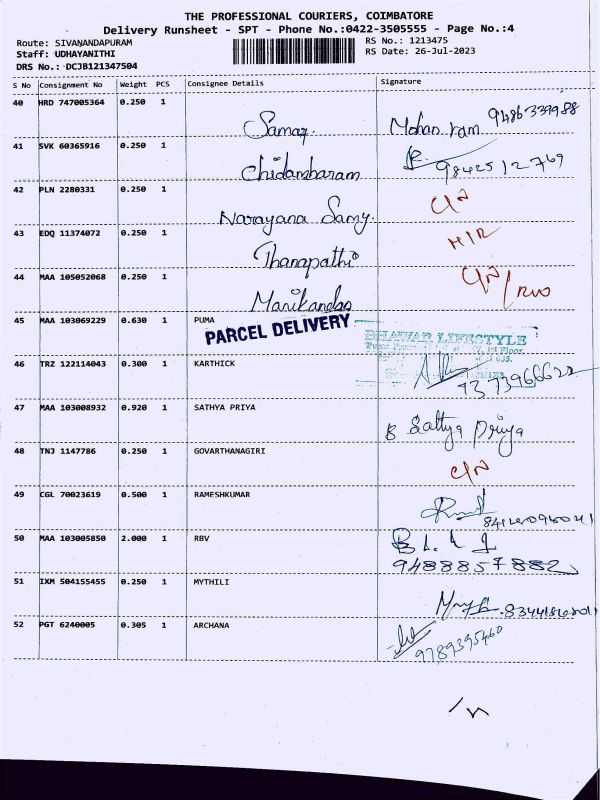 THE PROFESSIONAL COURIERS, COIMBATORE
Delivery Runsheet - SPT - Phone No.:0422-3505555 - Page No.:4
Route: SIVANANDAPURAM
Staff: UDHAYANITHI
DRS No.: DCJB121347504
RS No.: 1213475
RS Date: 26-Jul-2023
S No Consignment No Weight PCS Consignee Details Signature
40 HRD 747005364 0.250 1 Mohan ram 9486339988
41 SVK 60365916 0.250 1 Chidambaram 9842512769
42 PLN 2280331 0.250 1 Narayana Samy. C/N
43 EDQ 11374072 0.250 1 Thanapathi
44 MAA 105052068 0.250 1 Manikandan C/N
45 MAA 103069229 0.630 1 PUMA
PARCEL DELIVERY
BHAWAR LIFESTYLE
46 TRZ 122114043 0.300 1 KARTHICK 9373966622
47 MAA 103008932 0.920 1 SATHYA PRIYA B Sathya Priya
48 TNJ 1147786 0.250 1 GOVARTHANAGIRI C/N
49 CGL 70023619 0.500 1 RAMESHKUMAR
50 MAA 103005850 2.000 1 RBV 9488857882
51 IXM 504155455 0.250 1 MYTHILI
52 PGT 6240005 0.305 1 ARCHANA 9789395460